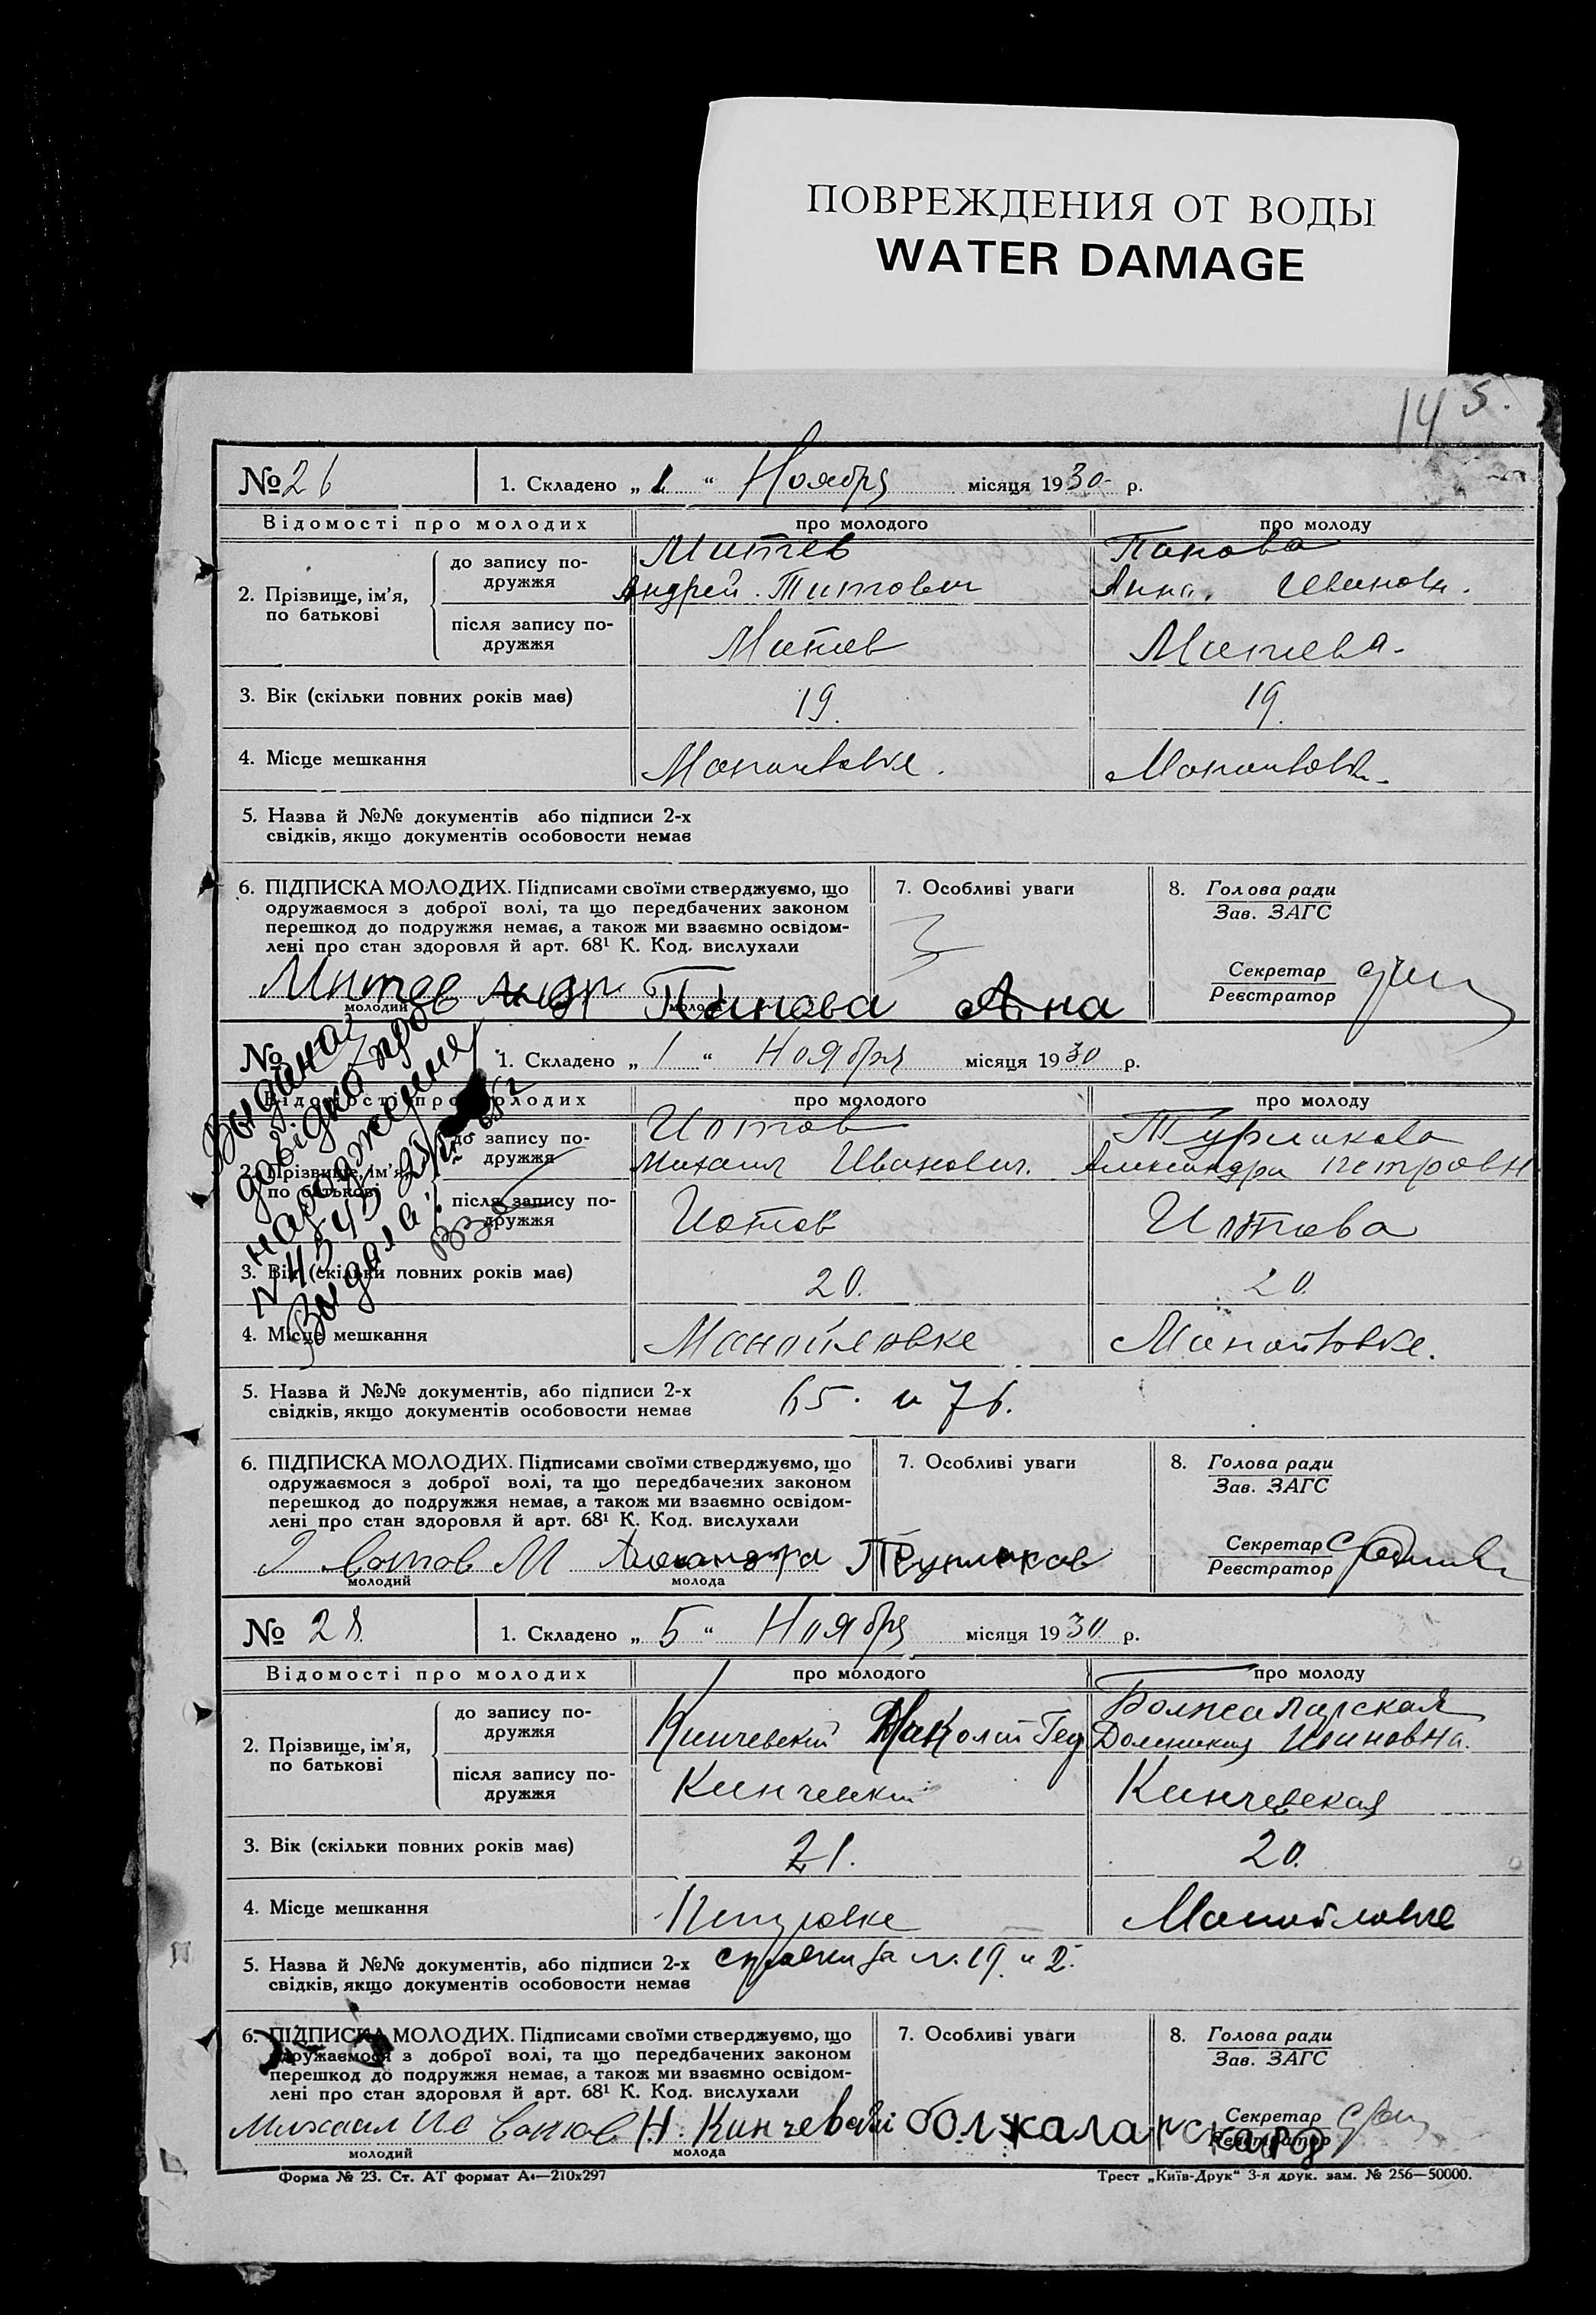 ПОВРЕЖДЕНИЯ ОТ ВОДЫ
WATER DAMAGE
145.
№ 26 1. Складено „ 1 “ Ноября місяця 1930 р.
Відомості про молодих про молодого про молоду
2. Прізвище, ім’я, по батькові
до запису по-
дружжя
Митев Панова
Андрей Титович Анна Ивановн.
після запису по-
дружжя
Митев Митева
3. Вік (скільки повних років має) 19. 19.
4. Місце мешкання
5. Назва й №№ документів або підписи 2-х
свідків, якщо документів особовости немає
6. ПІДПИСКА МОЛОДИХ. Підписами своїми стверджуємо, що
одружаємося з доброї волі, та що передбачених законом
перешкод до подружжя немає, а також ми взаємно освідом-
лені про стан здоровля й арт. 68¹ К. Код. вислухали
7. Особливі уваги
8. Голова ради
Зав. ЗАГС
Секретар
Реєстратор
Митев Андр Панова Ана
молодий молода
№ 1. Складено „ 1 “ Ноября місяця 1930 р.
Выдана
довідка про
народження
Выдала
Відомості про молодих про молодого про молоду
2. Прізвище, ім’я,
по батькові
до запису по-
дружжя
Иотов
Михаил Иванович. Александра Петровн
після запису по-
дружжя
Иотов Иотова
3. Вік (скільки повних років має) 20. 20.
4. Місце мешкання Манойловке Манойловке.
5. Назва й №№ документів, або підписи 2-х
свідків, якщо документів особовости немає
65. и 76.
6. ПІДПИСКА МОЛОДИХ. Підписами своїми стверджуємо, що
одружаємося з доброї волі, та що передбачених законом
перешкод до подружжя немає, а також ми взаємно освідом-
лені про стан здоровля й арт. 68¹ К. Код. вислухали
7. Особливі уваги
8. Голова ради
Зав. ЗАГС
Секретар
Реєстратор
молодий молода
№ 28. 1. Складено „ 5 “ Ноября місяця 1930 р.
Відомості про молодих про молодого про молоду
2. Прізвище, ім’я,
по батькові
до запису по-
дружжя
Болжаларская
Кинчевский Николай Гед Доминикия Ивановна.
після запису по-
дружжя
Кинчевский Кинчевская
3. Вік (скільки повних років має) 21. 20.
4. Місце мешкання Петровке Манойловке
5. Назва й №№ документів, або підписи 2-х
свідків, якщо документів особовости немає
справки за №. 19. и 2.
6. ПІДПИСКА МОЛОДИХ. Підписами своїми стверджуємо, що
одружаємося з доброї волі, та що передбачених законом
перешкод до подружжя немає, а також ми взаємно освідом-
лені про стан здоровля й арт. 68¹ К. Код. вислухали
7. Особливі уваги
8. Голова ради
Зав. ЗАГС
Секретар
Реєстратор
Михаил Н. Кинчевскі болжаларскара
молодий молода
Форма № 23. Ст. АТ формат А₄—210х297 Трест „Київ-Друк“ 3-я друк. зам. № 256—50000.